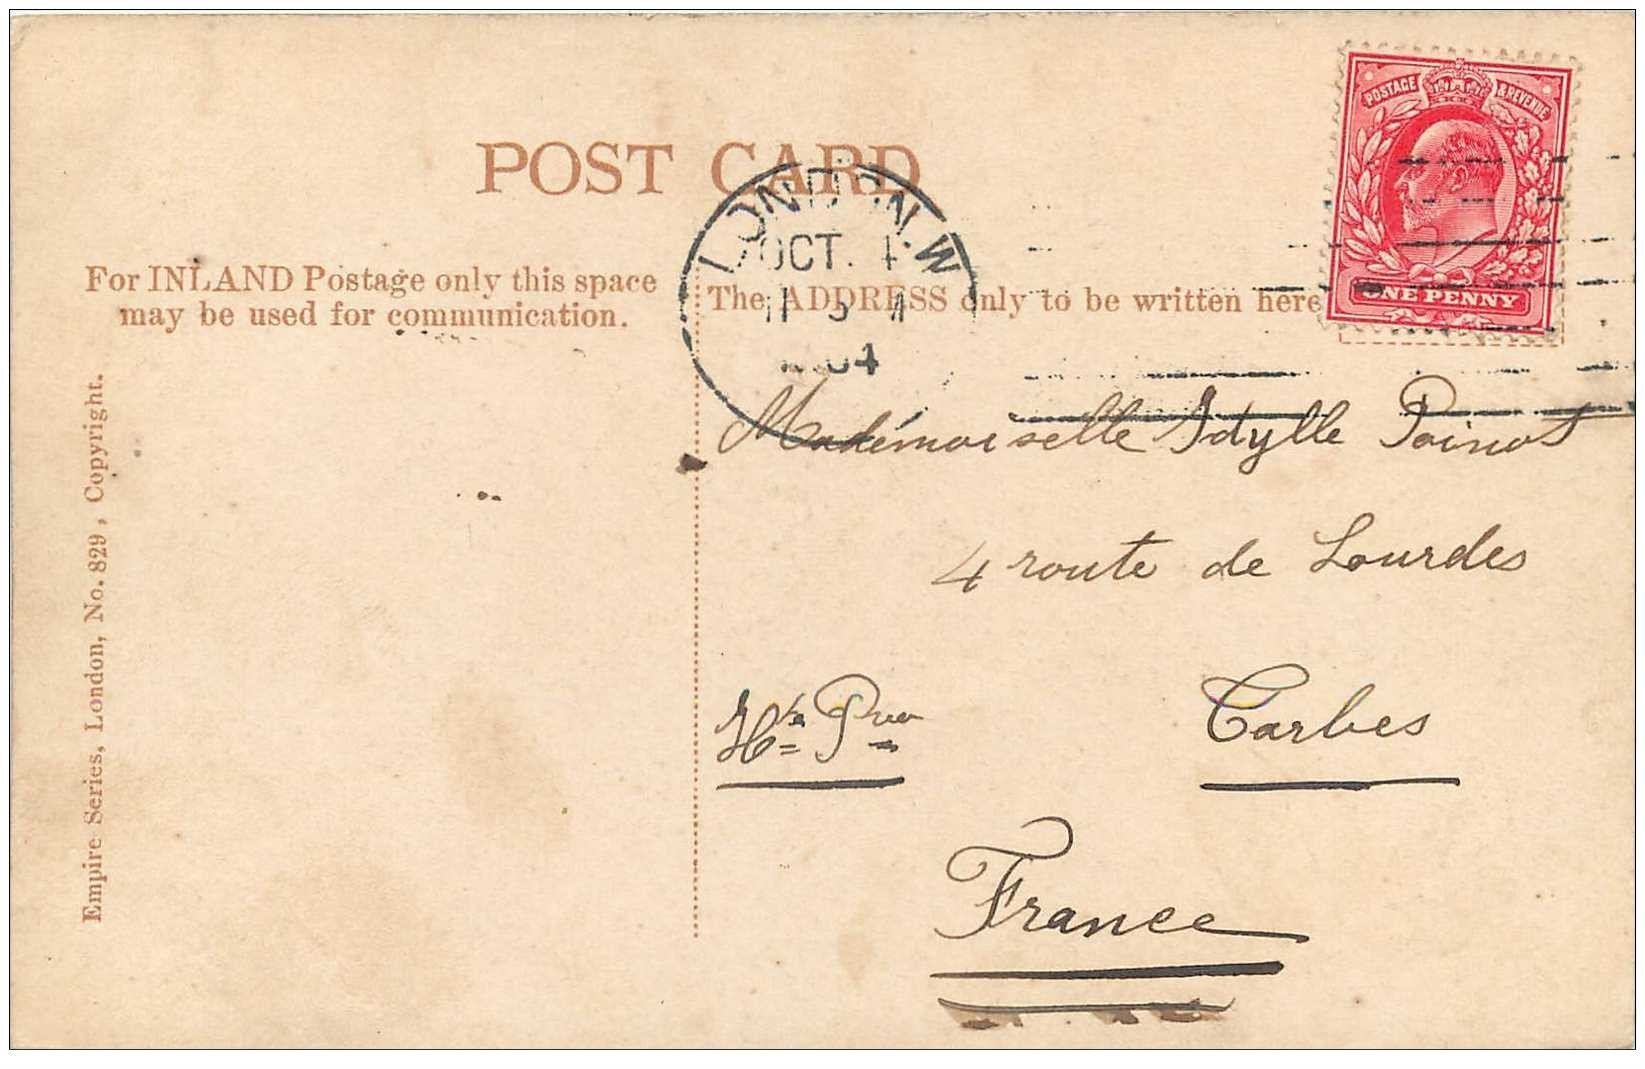 POSTAGE & REVENUE
ONE PENNY
POST CARD
LONDON. W
OCT. 4
04
For INLAND Postage only this space
may be used for communication.
The ADDRESS only to be written here
Empire Series, London, No. 829, Copyright.
Madémoiselle Idylle Poinot
4 route de Lourdes
Htes
Tarbes
France